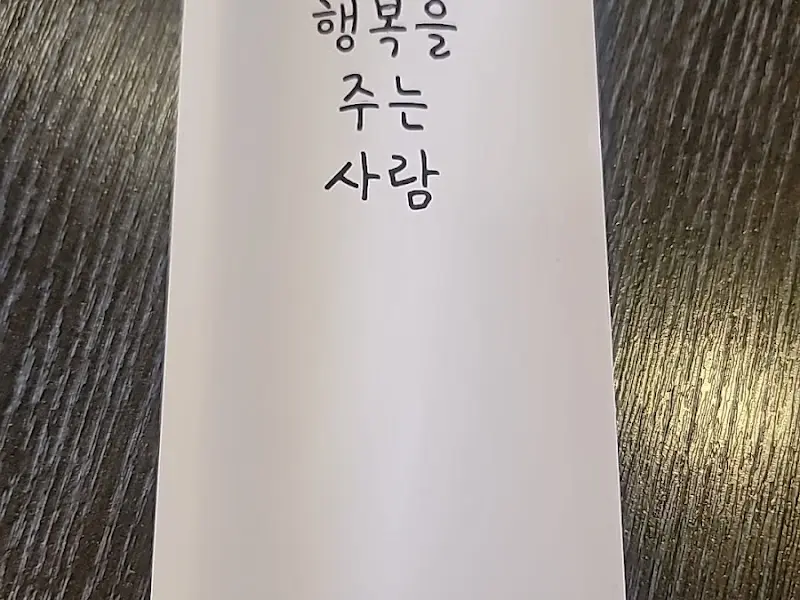 행복을
주는
사람